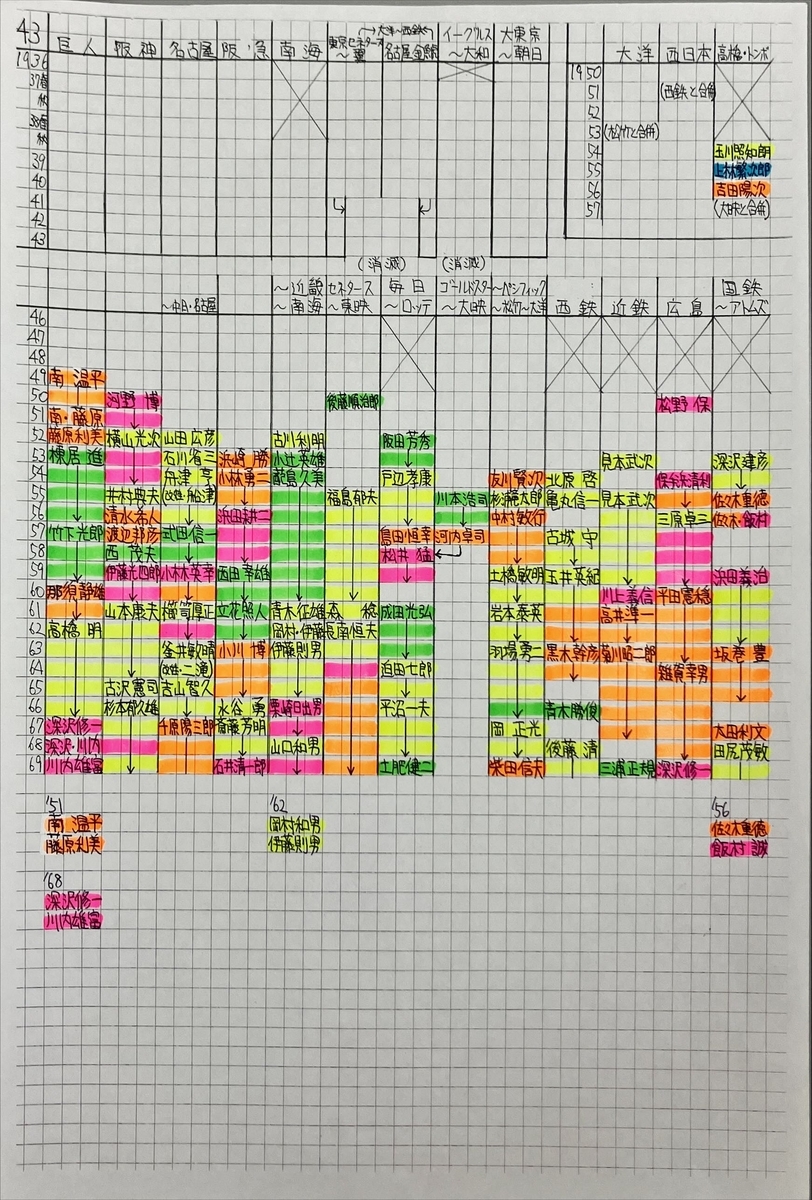 43 巨人 阪神 名古屋 阪急 南海 東京セネタース～翼 大洋～西鉄 名古屋金鯱 イーグルス～大和 大東京～朝日 大洋 西日本 高橋・トンボ
1936 1950
37春 51 (西鉄と合併)
秋 52
38春 53 (松竹と合併)
秋
39 54 玉川照知朗
40 55 上林繁次郎
41 56 吉田陽次
42 57 (大映と合併)
43
(消滅) (消滅)
～中日・名古屋 ～近畿～南海 セネタース～東映 毎日～ロッテ ゴールドスター～大映 ～パシフィック～松竹～大洋 西鉄 近鉄 広島 国鉄～アトムズ
46
47
48
49 南温平
50 河野博 後藤順治郎 松野保
51 南・藤原
52 藤原利美 横山光次 山田広彦 古川利明 阪田芳秀
53 棟居進 石川省三 浜崎勝 小辻英雄 見本武次 深沢建彦
54 舟津亨 小林勇二 蔵島久美 戸辺孝康 友川賢次 北原啓 保谷沢清利
55 井村典夫 (改姓・船津) 福島郁夫 川本浩司 杉浦藤太郎 亀丸信一 見本武次 佐々木重徳
56 清水各人 浜田耕二 中村敏行 三原卓三 佐々木・飯村
57 竹下光郎 渡辺邦彦 式田信一 島田恒幸 河内卓司 古城守
58 西茂夫 松井猛
59 伊藤光四郎 小林英幸 西田幸雄 土橋敏明 玉井英紀 浜田義治
60 那須静雄 川上義信 平田憲穂
61 山本康夫 櫛笥厚正 立花照人 青木征雄 森穂 成田光弘 岩本泰英 高井準一
62 高橋明 岡村・伊藤 長南恒夫
63 釜井敏晴 小川博 伊藤則男 羽場勇二 黒木幹彦 菊川昭二郎 坂巻豊
64 (改姓・二滝) 迫田七郎 雑賀幸男
65 古沢憲司 吉山智久
66 杉本郁久雄 水谷勇 栗崎日出男 平沼一夫 青木勝俊
67 深沢修一 千原陽三郎 斎藤芳明 岡正光 太田利文
68 深沢・川内 山口和男 後藤清 田尻茂敏
69 川内雄富 石井清一郎 土肥健二 柴田信夫 三浦正規 深沢修一
'51 '62 '56
南温平 岡村和男 佐々木重徳
藤原利美 伊藤則男 飯村誠
'68
深沢修一
川内雄富